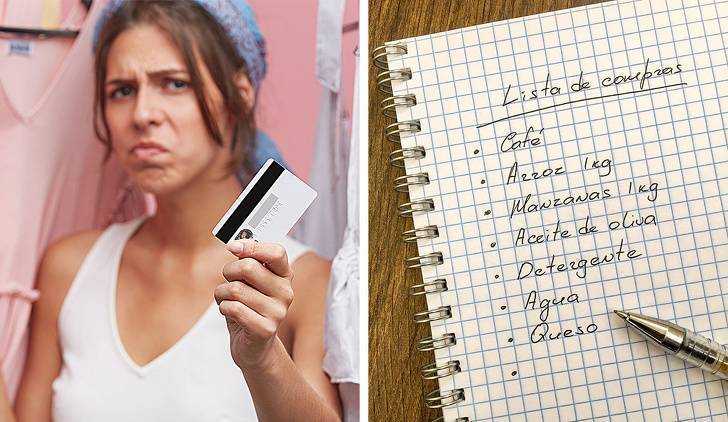 Lista de compras
• Café
• Arroz 1kg
• Manzanas 1kg
• Aceite de oliva
• Detergente
• Agua
• Queso
•